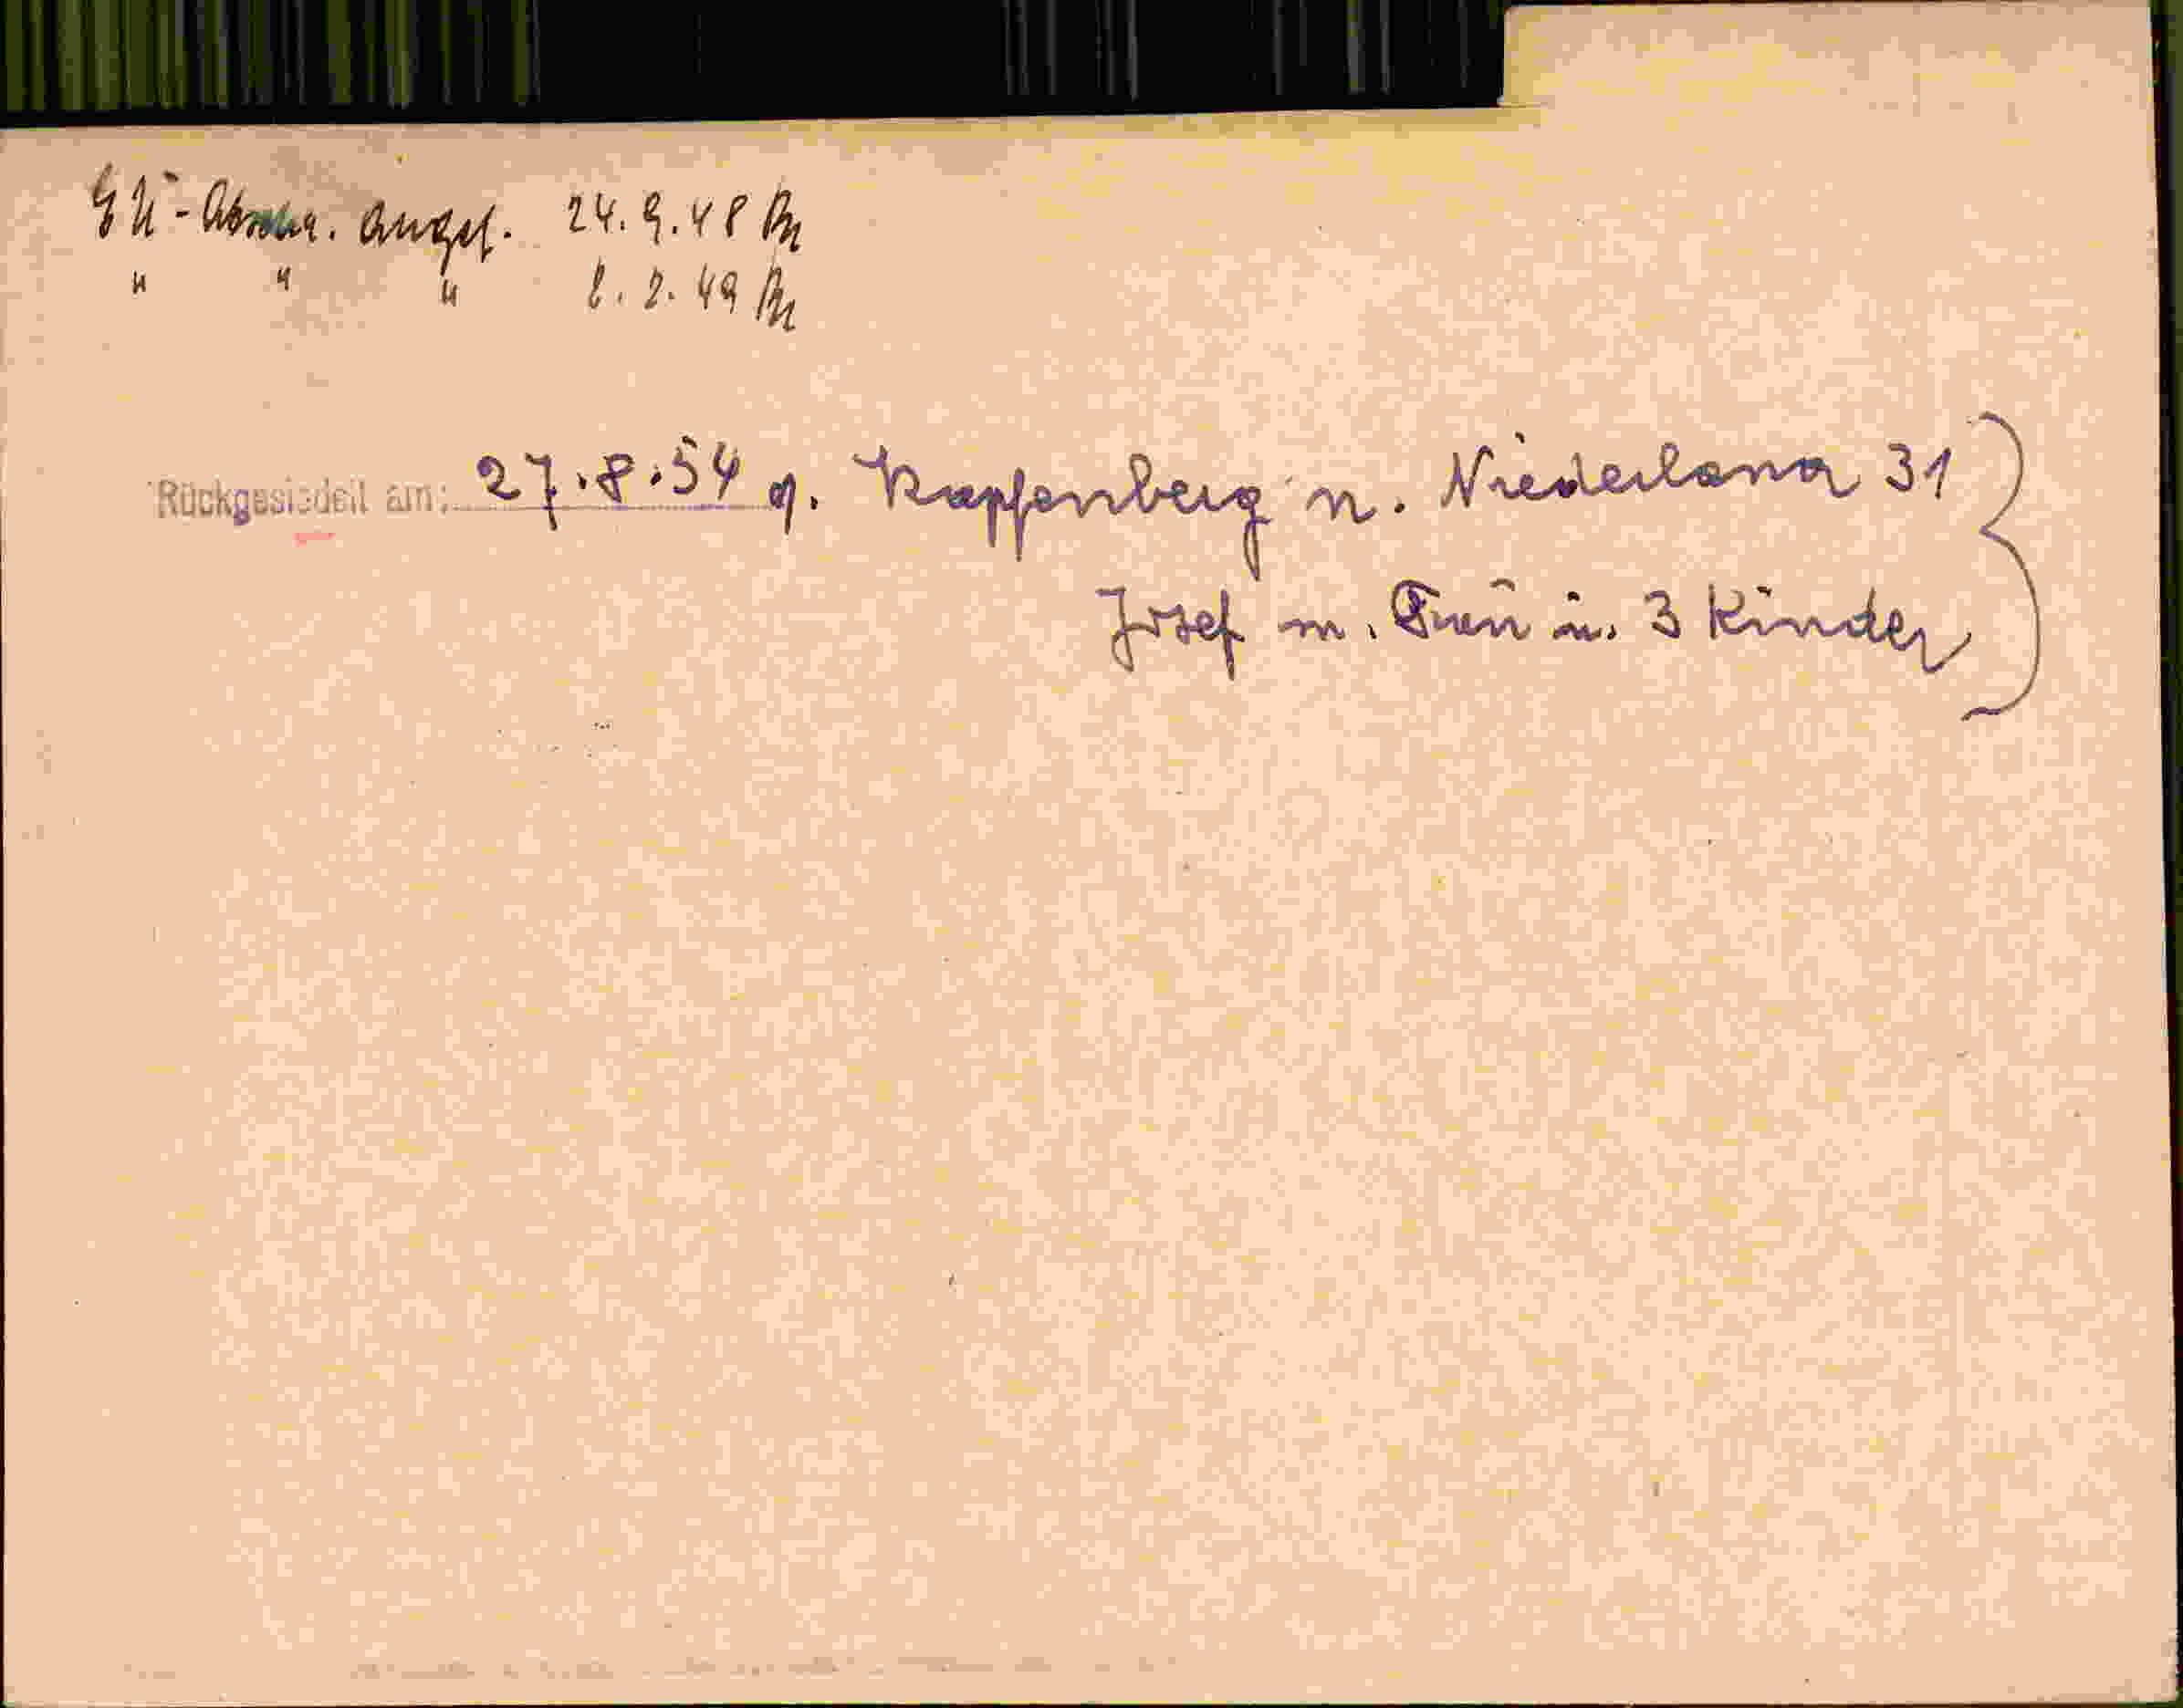 GU-Abschr. Angef. 24.9.48
" " " 8.2.49
Rückgesiedelt am: 27.8.54 v. Kapfenberg n. Niederlana 31
Josef m. Frau u. 3 Kinder